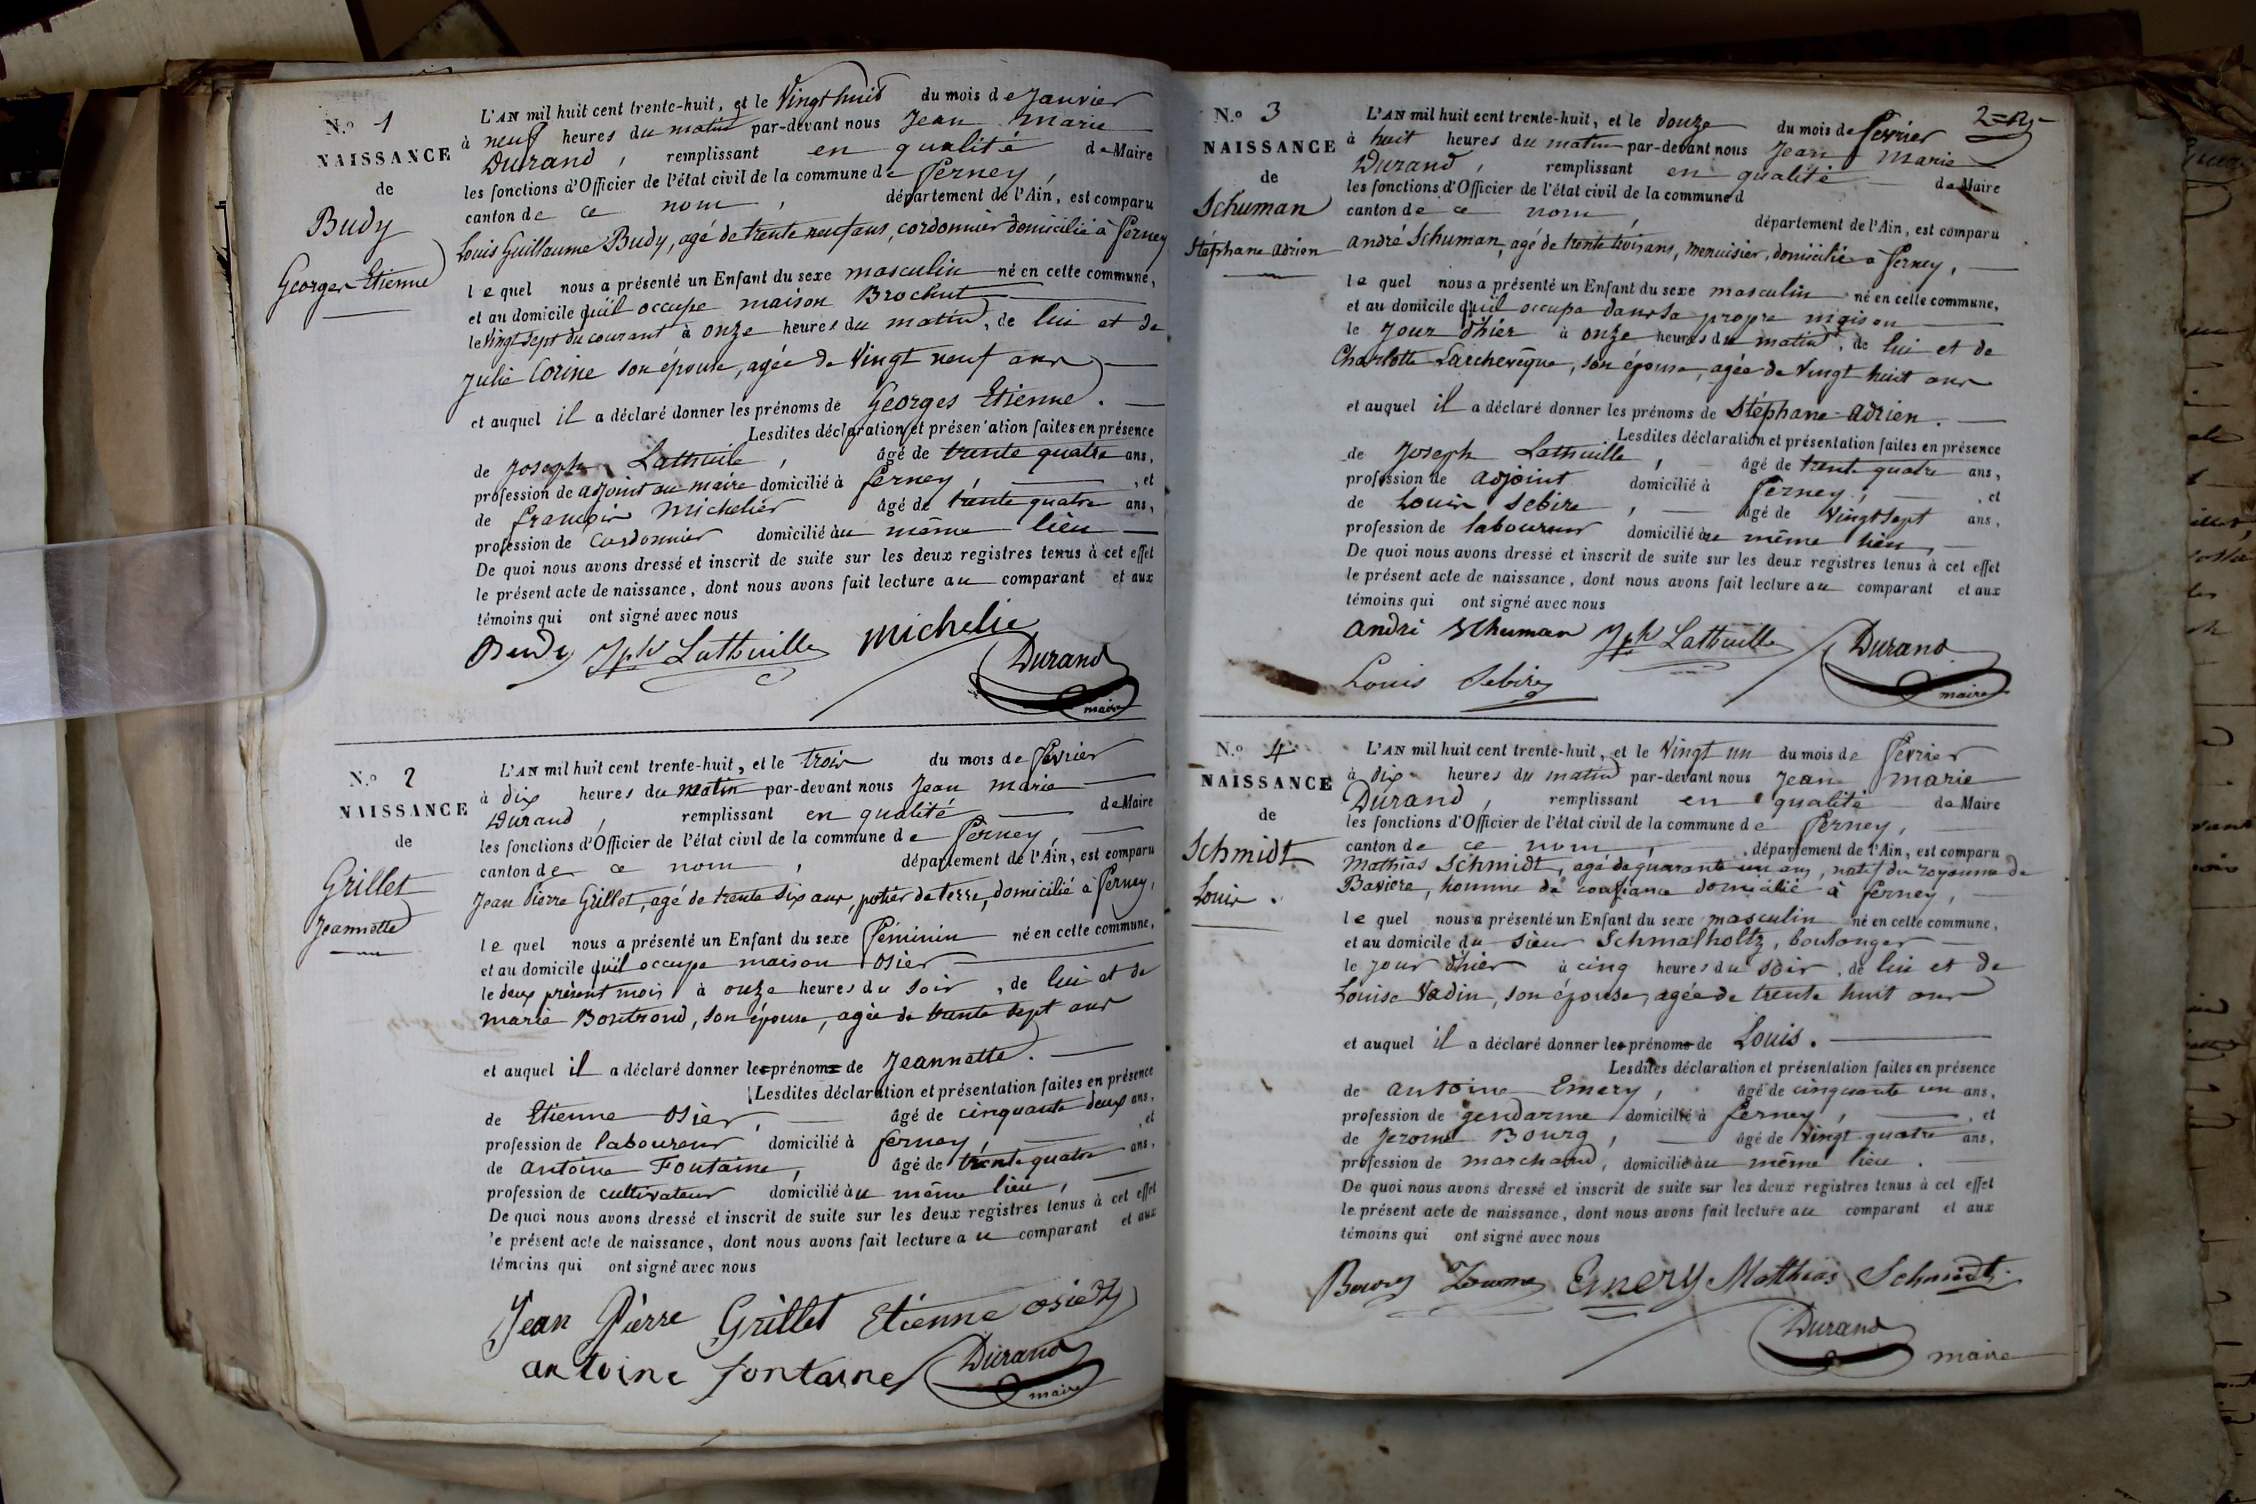 N.o 1
NAISSANCE
de
Budy
Georges Etienne
L'AN mil huit cent trente-huit, et le Vingt huit du mois de Janvier
à neuf heures du matin par-devant nous Jean Marie
Durand, remplissant en qualité de Maire
les fonctions d'Officier de l'état civil de la commune de Ferney,
canton de ce nom, département de l'Ain, est comparu
Louis Guillaume Budy, agé de trente neuf ans, cordonnier domicilié à Ferney
le quel nous a présenté un Enfant du sexe masculin né en cette commune,
et au domicile qu'il occupe maison Brochut
le Vingt sept du courant à onze heures du matin, de lui et de
Julie Corine son épouse, agée de Vingt neuf ans
et auquel il a déclaré donner les prénoms de Georges Etienne.
Lesdites déclaration et présen'ation faites en présence
de Joseph Lathuile, âgé de trente quatre ans,
profession de adjoint au maire domicilié à Ferney, , et
de françois Michelier âgé de trente quatre ans,
profession de cordonnier domicilié au même lieu
De quoi nous avons dressé et inscrit de suite sur les deux registres tenus à cet effet
le présent acte de naissance, dont nous avons fait lecture au comparant et aux
témoins qui ont signé avec nous
Budy Jph Lathuille Michelie
Durand
maire
N.o 2
NAISSANCE
de
Grillet
Jeannette
L'AN mil huit cent trente-huit, et le trois du mois de fevrier
à dix heures du matin par-devant nous Jean marie
Durand, remplissant en qualité de Maire
les fonctions d'Officier de l'état civil de la commune de Ferney,
canton de ce nom, département de l'Ain, est comparu
Jean Pierre Grillet, agé de trente six ans, potier de terre, domicilié à Ferney,
le quel nous a présenté un Enfant du sexe féminin né en cette commune,
et au domicile qu'il occupe maison Osier
le deux présent mois à onze heures du soir, de lui et de
marie Boutroud, son épouse, agée de trente sept ans
et auquel il a déclaré donner les prénoms de Jeannette.
Lesdites déclaration et présentation faites en présence
de Etienne Osier, âgé de cinquante deux ans,
profession de laboureur domicilié à ferney, , et
de antoine Fontaine, âgé de trente quatre ans,
profession de cultivateur domicilié au même lieu,
De quoi nous avons dressé et inscrit de suite sur les deux registres tenus à cet effet
'e présent acte de naissance, dont nous avons fait lecture au comparant et aux
témoins qui ont signé avec nous
Jean Pierre Grillet Etienne osier
antoine fontaine Durand
maire
2=
N.o 3
NAISSANCE
de
Schuman
Stéphane adrien
L'AN mil huit cent trente-huit, et le douze du mois de fevrier
à huit heures du matin par-devant nous Jean Marie
Durand, remplissant en qualité de Maire
les fonctions d'Officier de l'état civil de la commune d
canton de ce nom, département de l'Ain, est comparu
andré Schuman, agé de trente trois ans, menuisier, domicilié à Ferney,
le quel nous a présenté un Enfant du sexe masculin né en cette commune,
et au domicile qu'il occupe dans sa propre maison
le jour d'hier à onze heures du matin, de lui et de
Charlotte Larchevêque, son épouse, agée de Vingt huit ans
et auquel il a déclaré donner les prénoms de Stéphane adrien.
Lesdites déclaration et présentation faites en présence
de Joseph Lathuille, âgé de trente quatre ans,
profession de adjoint domicilié à Ferney, , et
de Louis Sebire, âgé de Vingt sept ans,
profession de laboureur domicilié au même lieu,
De quoi nous avons dressé et inscrit de suite sur les deux registres tenus à cet effet
le présent acte de naissance, dont nous avons fait lecture au comparant et aux
témoins qui ont signé avec nous
andré schuman Jph Lathuille Durand
Louis Sebire maire
N.o 4
NAISSANCE
de
Schmidt
Louis.
L'AN mil huit cent trente-huit, et le Vingt un du mois de fevrier
à dix heures du matin par-devant nous Jean marie
Durand, remplissant en qualité de Maire
les fonctions d'Officier de l'état civil de la commune de Ferney,
canton de ce nom, département de l'Ain, est comparu
Mathias Schmidt, agé de quarante un ans, natif du royaume de
Baviere, homme de confiance domicilié à ferney,
le quel nous a présenté un Enfant du sexe masculin né en cette commune,
et au domicile du sieur Schmalholtz, boulanger
le jour d'hier à cinq heures du soir, de lui et de
Louise Vadin, son épouse, agée de trente huit ans
et auquel il a déclaré donner les prénoms de Louis.
Lesdites déclaration et présentation faites en présence
de antoine Emery, âgé de cinquante un ans,
profession de gendarme domicilié à ferney, , et
de Jerome Bourg, âgé de Vingt quatre ans,
profession de marchand, domicilié au même lieu.
De quoi nous avons dressé et inscrit de suite sur les deux registres tenus à cet effet
le présent acte de naissance, dont nous avons fait lecture au comparant et aux
témoins qui ont signé avec nous
Bourg Emery Matthias Schmidt
Durand
maire